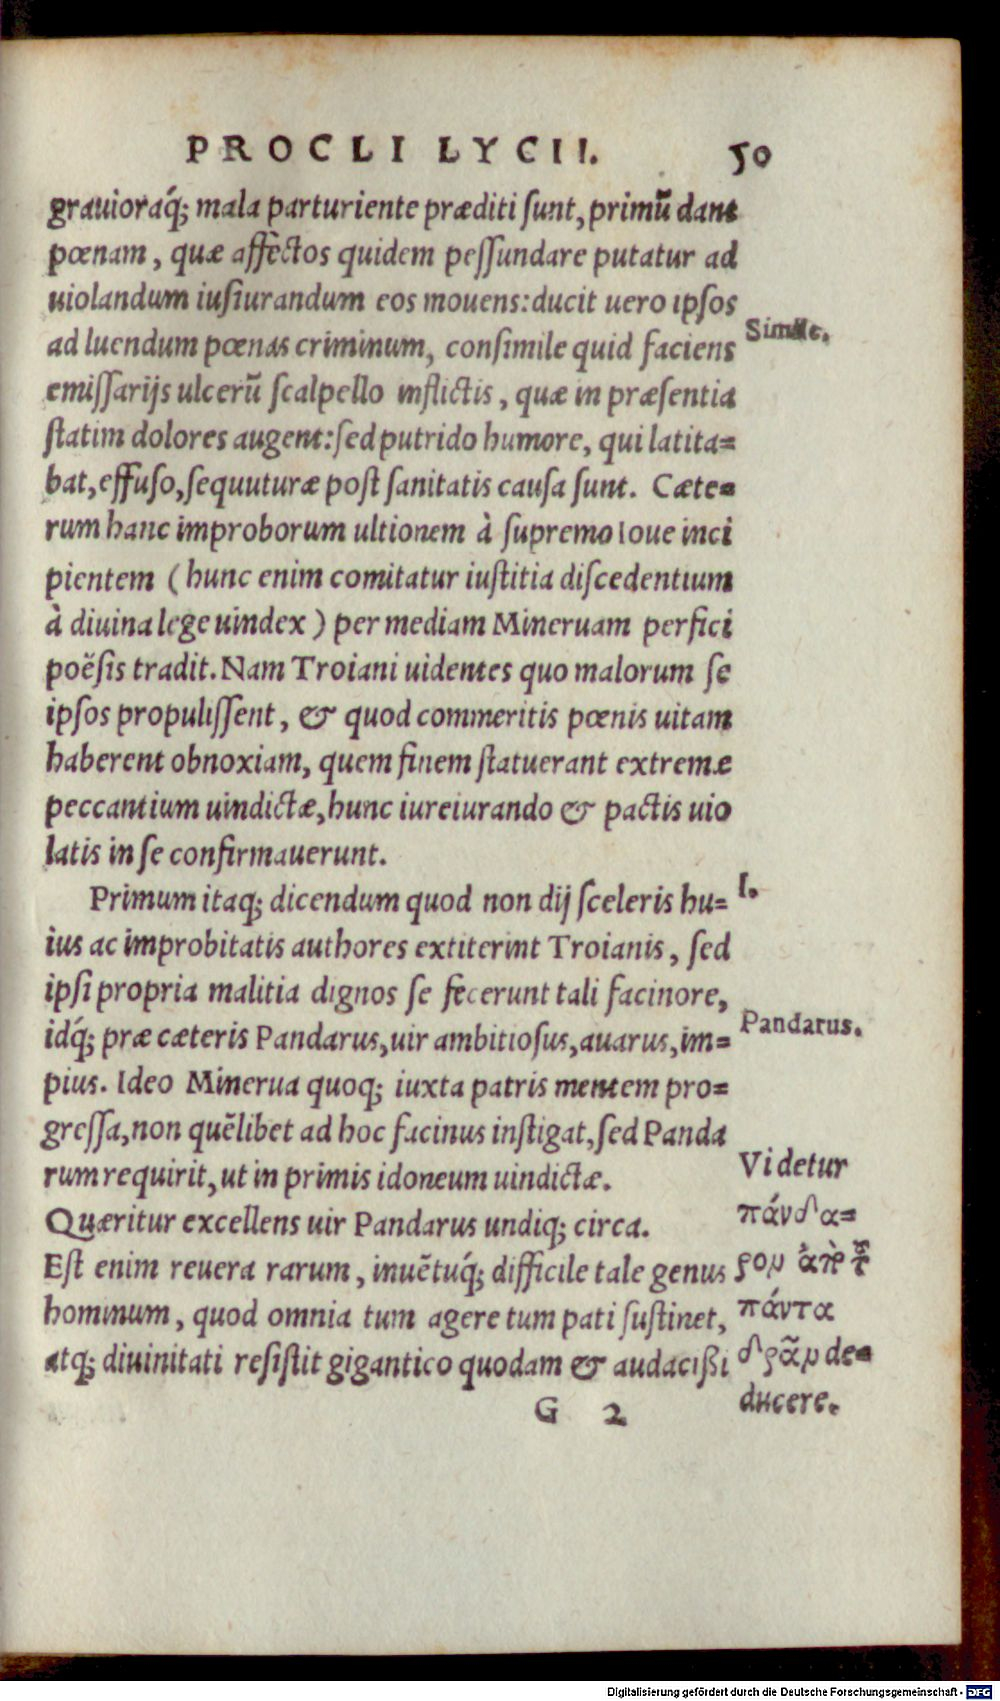 PROCLI LYCII. 50
grauioraq́; mala parturiente præditi ſunt, primũ dant
pœnam, quæ affectos quidem peſſundare putatur ad
uiolandum iuſiurandum eos mouens: ducit uero ipſos
Simile.
ad luendum pœnas criminum, conſimile quid faciens
emiſſarijs ulcerũ ſcalpello inflictis, quæ in præſentia
ſtatim dolores augent: ſed putrido humore, qui latita=
bat, effuſo, ſequuturæ poſt ſanitatis cauſa ſunt. Cæte=
rum hanc improborum ultionem à ſupremo Ioue inci
pientem (hunc enim comitatur iuſtitia diſcedentium
à diuina lege uindex) per mediam Mineruam perfici
poëſis tradit. Nam Troiani uidentes quo malorum ſe
ipſos propuliſſent, & quod commeritis pœnis uitam
haberent obnoxiam, quem finem ſtatuerant extremæ
peccantium uindictæ, hunc iureiurando & pactis uio
latis in ſe confirmauerunt.
Primum itaq; dicendum quod non dij ſceleris hu=
I.
ius ac improbitatis authores extiterint Troianis, ſed
ipſi propria malitia dignos ſe fecerunt tali facinore,
Pandarus.
idq́; præ cæteris Pandarus, uir ambitioſus, auarus, im=
pius. Ideo Minerua quoq; iuxta patris mentem pro=
greſſa, non quẽlibet ad hoc facinus inſtigat, ſed Panda
rum requirit, ut in primis idoneum uindictæ.
Quæritur excellens uir Pandarus undiq; circa.
Eſt enim reuera rarum, inuẽtuq́; difficile tale genus
hominum, quod omnia tum agere tum pati ſuſtinet,
atq; diuinitati reſiſtit gigantico quodam & audacißi
Videtur
πάνδα=
ρον ἀπὸ τῦ
πάντα
δρᾶν de=
ducere.
G 2
Digitalisierung gefördert durch die Deutsche Forschungsgemeinschaft - DFG